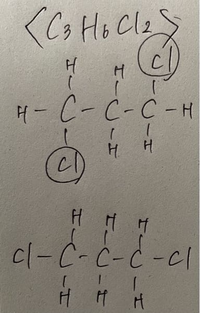 <C3H6Cl2>
H H Cl
H-C-C-C-H
Cl H H
H H H
Cl-C-C-C-Cl
H H H